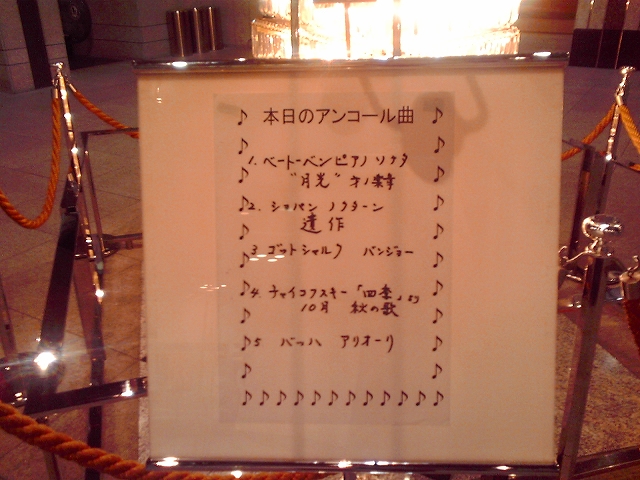 本日のアンコール曲
1. ベートーベンピアノ ソナタ
"月光" 才1楽章
2. ショパン ノクターン
遺作
3 ゴットシャルク バンジョー
4. チャイコフスキー「四季」より
10月 秋の歌
5 バッハ アリオーソ